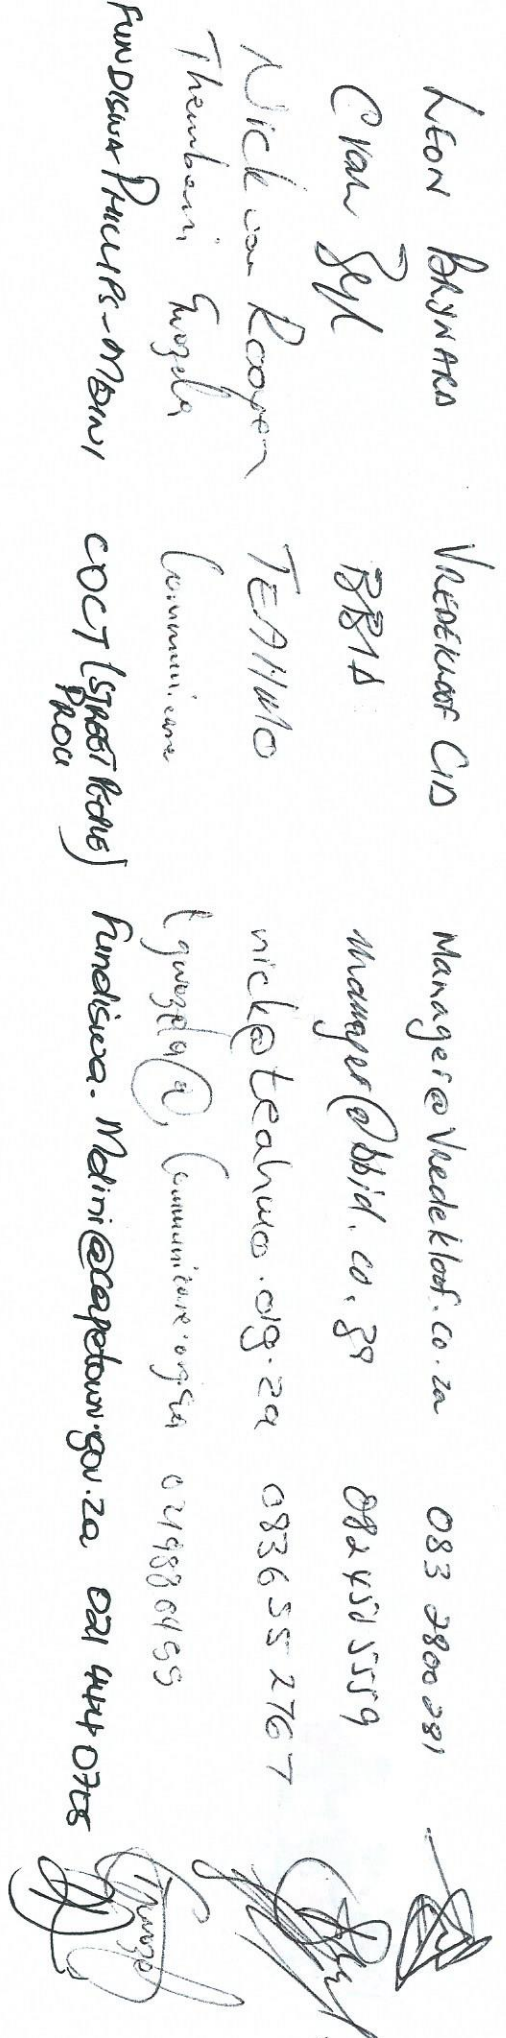 LEON BRYNARD VREDEKLOOF CID Manager@Vredekloof.co.za 083 2800 281
C van Zyl BBID manager@bbid.co.za 082 4515559
Nick van Rooyen TEAHWO nick@teahwo.org.za 083655 2767
Thembani Gwozela Communicare tgwozela@communicare.org.za
FUNDISWA PHILLIPS-MDINI COCT (STREET PEOPLE)
Fundiswa.Mdini@capetown.gov.za 021 444